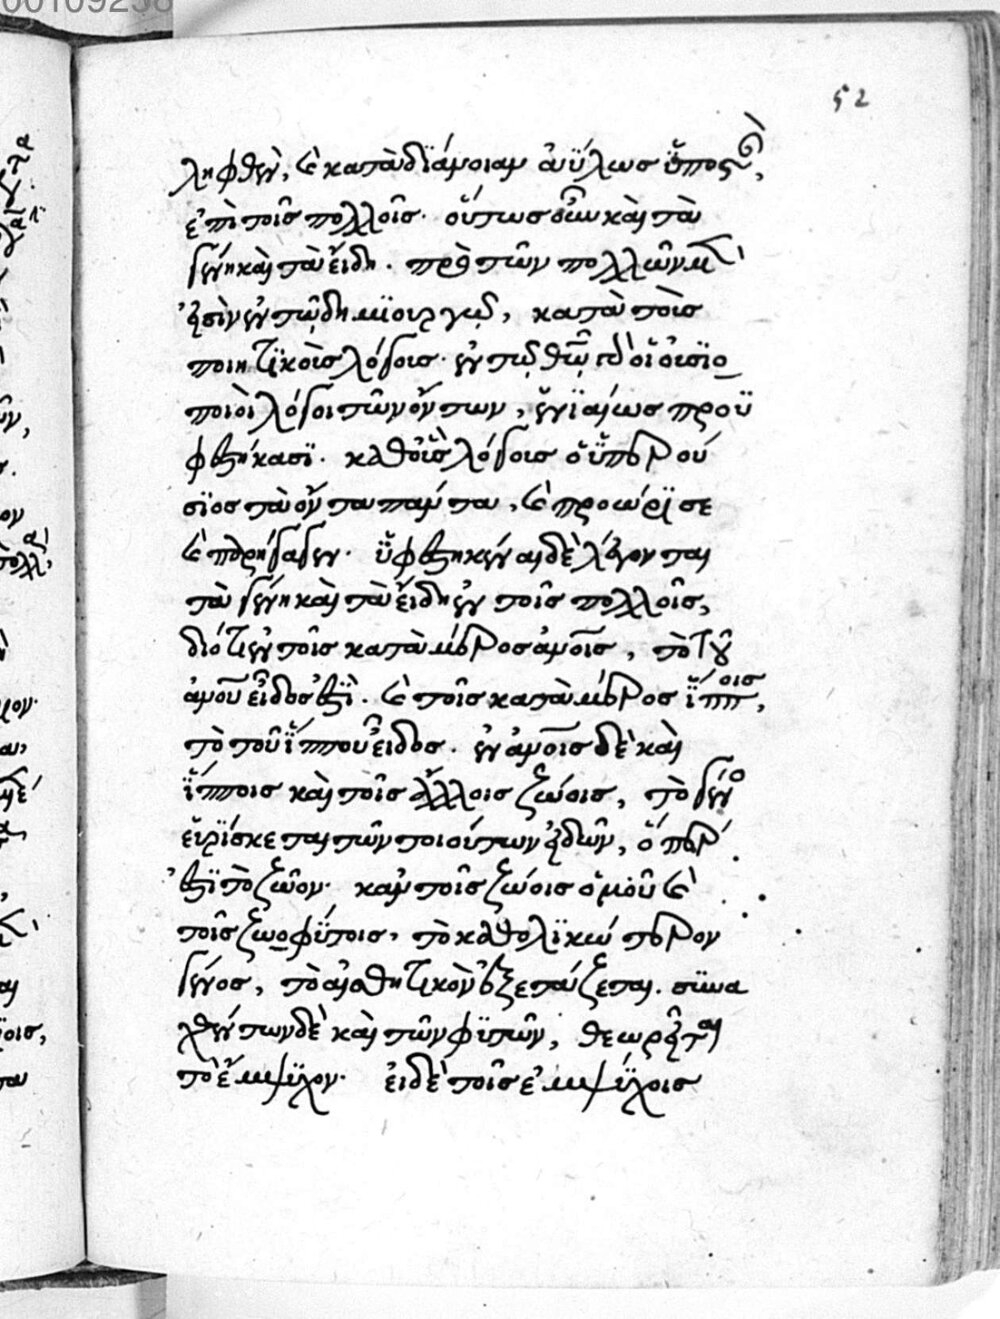 52
ληφθὲν, καὶ κατὰ διάνοιαν ἀΰλως ὑποστὰν,
ἐπὶ τοῖς πολλοῖς. οὕτως οὖν καὶ τὰ
γένη καὶ τὰ εἴδη. πρὸ τῶν πολλῶν μέν
εἰσὶν ἐν τῷ δημιουργῷ, κατὰ τοὺς
ποιητικοὺς λόγους. ἐν τῷ θεῷ γὰρ οἱ οὐσιο
ποιοὶ λόγοι τῶν ὄντων, ἑνιαίως προϋ
φεστήκασι. καθ' οὓς λόγους ὁ ὑπερού
σιος τὰ ὄντα πάντα, καὶ προώρισε
καὶ παρήγαγεν. ὑφεστηκέναι δὲ λέγονται
τὰ γένη καὶ τὰ εἴδη ἐν τοῖς πολλοῖς,
διότι ἐν τοῖς κατὰ μέρος ἀνοις, τὸ τοῦ
ἀνου εἶδός ἐστι. καὶ τοῖς κατὰ μέρος ἵπποις,
τὸ τοῦ ἵππου εἶδος. ἐν ἀνοις δὲ καὶ
ἵπποις καὶ τοῖς ἄλλοις ζώοις, τὸ γένος
εὑρίσκεται τῶν τοιούτων εἰδῶν, ὅπερ
ἐστὶ τὸ ζῶον. κἀν τοῖς ζώοις ὁμοῦ καὶ
τοῖς ζωοφύτοις, τὸ καθολικώτερον
γένος, τὸ αἰσθητικὸν ἐξετάζεται. συνα
χθέντων δὲ καὶ τῶν φυτῶν, θεωρεῖται
τὸ ἔμψυχον. εἰ δὲ τοῖς ἐμψύχοις